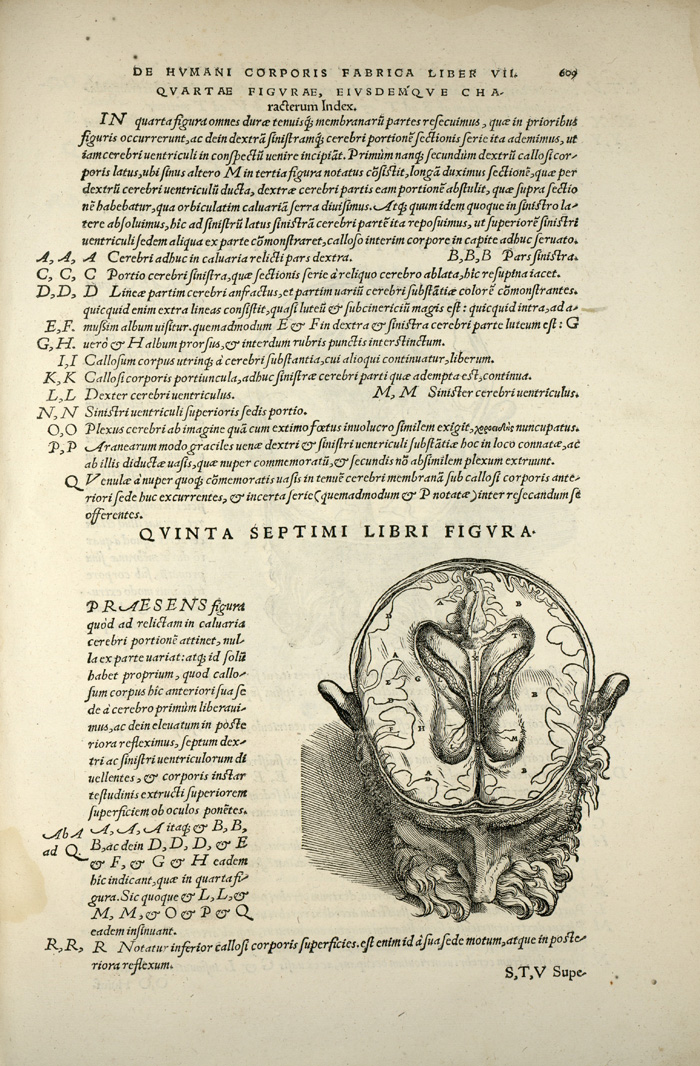 DE HVMANI CORPORIS FABRICA LIBER VII. 609
QVARTAE FIGVRAE, EIVSDEMQVE CHA-
racterum Index.
IN quarta figura omnes duræ tenuisq; membranarũ partes resecuimus, quæ in prioribus
figuris occurrerunt, ac dein dextrã sinistramq; cerebri portionẽ sectionis serie ita ademimus, ut
iam cerebri uentriculi in conspectũ uenire incipiãt. Primùm nanq; secundum dextrũ callosi cor-
poris latus, ubi sinus altero M in tertia figura notatus cõsistit, longã duximus sectionẽ, quæ per
dextrũ cerebri uentriculũ ducta, dextræ cerebri partis eam portionẽ abstulit, quæ supra sectio
nẽ habebatur, qua orbiculatim caluariã serra diuisimus. Atq; quum idem quoque in sinistro la-
tere absoluimus, hîc ad sinistrũ latus sinistrã cerebri partẽ ita reposuimus, ut superiorẽ sinistri
uentriculi sedem aliqua ex parte cõmonstraret, calloso interim corpore in capite adhuc seruato.
A, A, A Cerebri adhuc in caluaria relicti pars dextra. B, B, B Pars sinistra.
C, C, C Portio cerebri sinistra, quæ sectionis serie à reliquo cerebro ablata, hîc resupina iacet.
D, D, D Lineæ partim cerebri anfractus, et partim uariũ cerebri substãtiæ colorẽ cõmonstrantes.
quicquid enim extra lineas consistit, quasi luteũ & subcinericiũ magis est: quicquid intra, ad a-
E, F. mussim album uisitur. quemadmodum E & F in dextra & sinistra cerebri parte luteum est: G
G, H. uerò & H album prorsus, & interdum rubris punctis interstinctum.
I, I Callosum corpus utrinq; à cerebri substantia, cui alioqui continuatur, liberum.
K, K Callosi corporis portiuncula, adhuc sinistræ cerebri parti quæ adempta est, continua.
L, L Dexter cerebri uentriculus. M, M Sinister cerebri uentriculus.
N, N Sinistri uentriculi superioris sedis portio.
O, O Plexus cerebri ab imagine quã cum extimo fœtus inuolucro similem exigit, nuncupatus.
P, P Aranearum modo graciles uenæ dextri & sinistri uentriculi substãtiæ hoc in loco connatæ, ac
ab illis diductæ uasis, quæ nuper commemoratũ, & secundis nõ absimilem plexum extruunt.
Q Venulæ à nuper quoq; cõmemoratis uasis in tenuẽ cerebri membranã sub callosi corporis ante-
riori sede huc excurrentes, & incerta serie (quemadmodum & P notatæ) inter resecandum se
offerentes.
QVINTA SEPTIMI LIBRI FIGVRA.
PRAESENS figura
quod ad relictam in caluaria
cerebri portionẽ attinet, nul-
la ex parte uariat: atq; id solũ
habet proprium, quod callo-
sum corpus hîc anteriori sua se
de à cerebro primùm liberaui-
mus, ac dein eleuatum in poste
riora reflexìmus, septum dex-
tri ac sinistri uentriculorum di
uellentes, & corporis instar
testudinis extructi superiorem
superficiem ob oculos ponẽtes.
Ab A A, A, A itaq; & B, B,
ad Q B, ac dein D, D, D, & E
& F, & G & H eadem
hîc indicant, quæ in quarta fi-
gura. Sic quoque & L, L, &
M, M, & O & P & Q
eadem insinuant.
R, R, R Notatur inferior callosi corporis superficies. est enim id à sua sede motum, atque in poste-
riora reflexum.
S, T, V Supe-